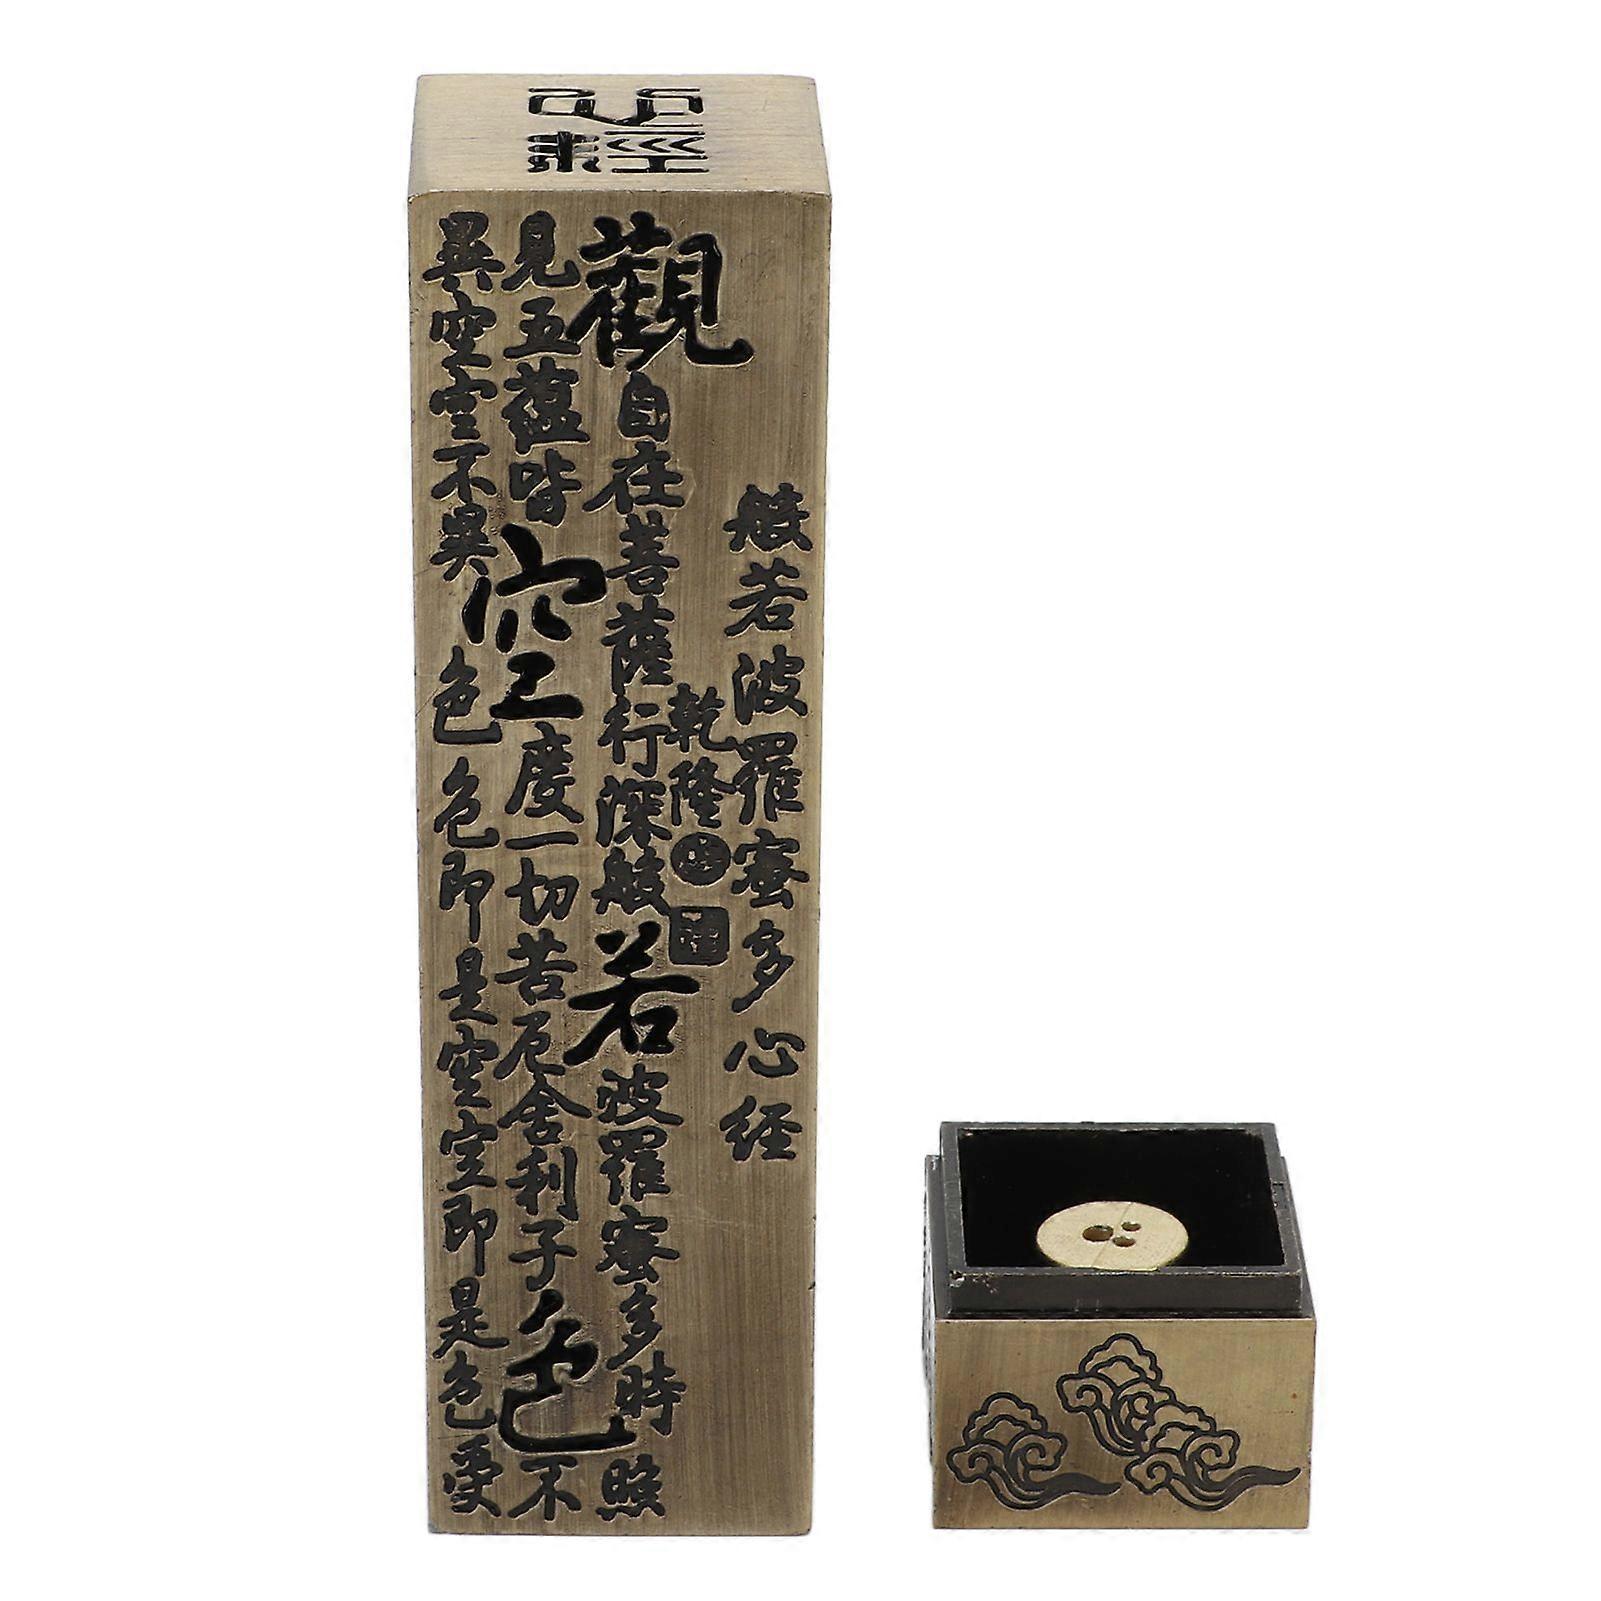 心經
般若波羅蜜多心経
乾隆
觀自在菩薩行深般若波羅蜜多時照
見五蘊皆空度一切苦厄舍利子色不
異空空不異色色即是空空即是色受